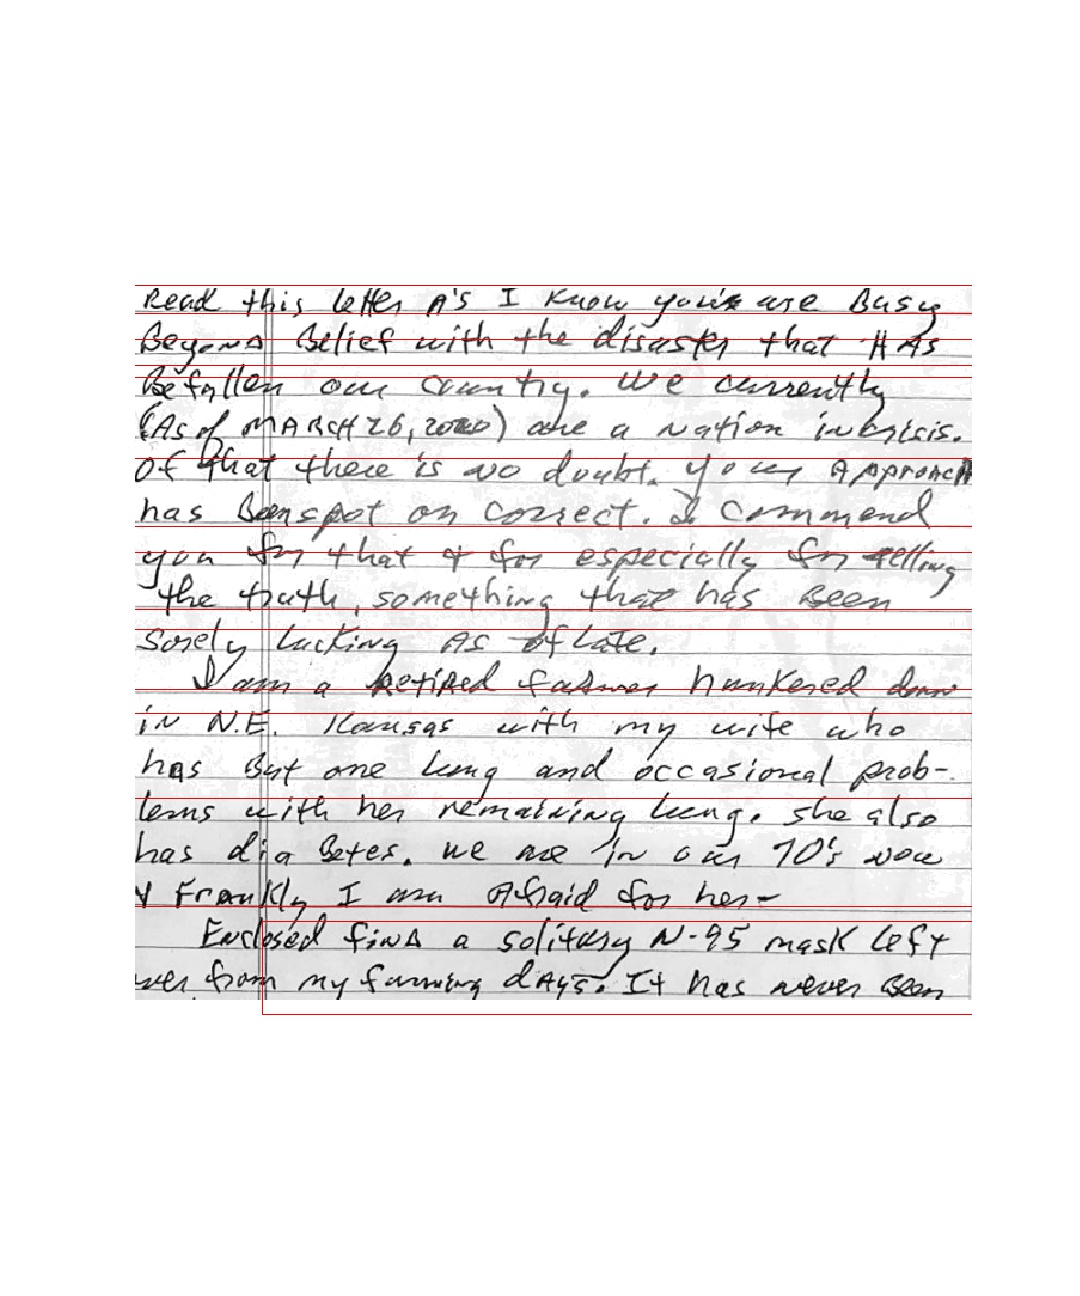 Read this letter A's I know you are Busy
Beyond Belief with the disaster that HAs
Befallen our country. We currently
(As of MARCH 26, 2020) are a Nation in crisis.
Of that there is no doubt. Your ApproacH
has Been spot on correct. I commend
you for that & for especially for telling
the truth, something that has Been
sorely lacking As of Late.
I am a retired farmer hunkered down
in N.E. Kansas with my wife who
has But one lung and occasional prob-
lems with her remaining lung. She also
has diaBetes. We are in our 70's now
& Frankly I am Afraid for her-
Enclosed find a solitary N-95 mask left
ver from my farming dAys. It has never Been